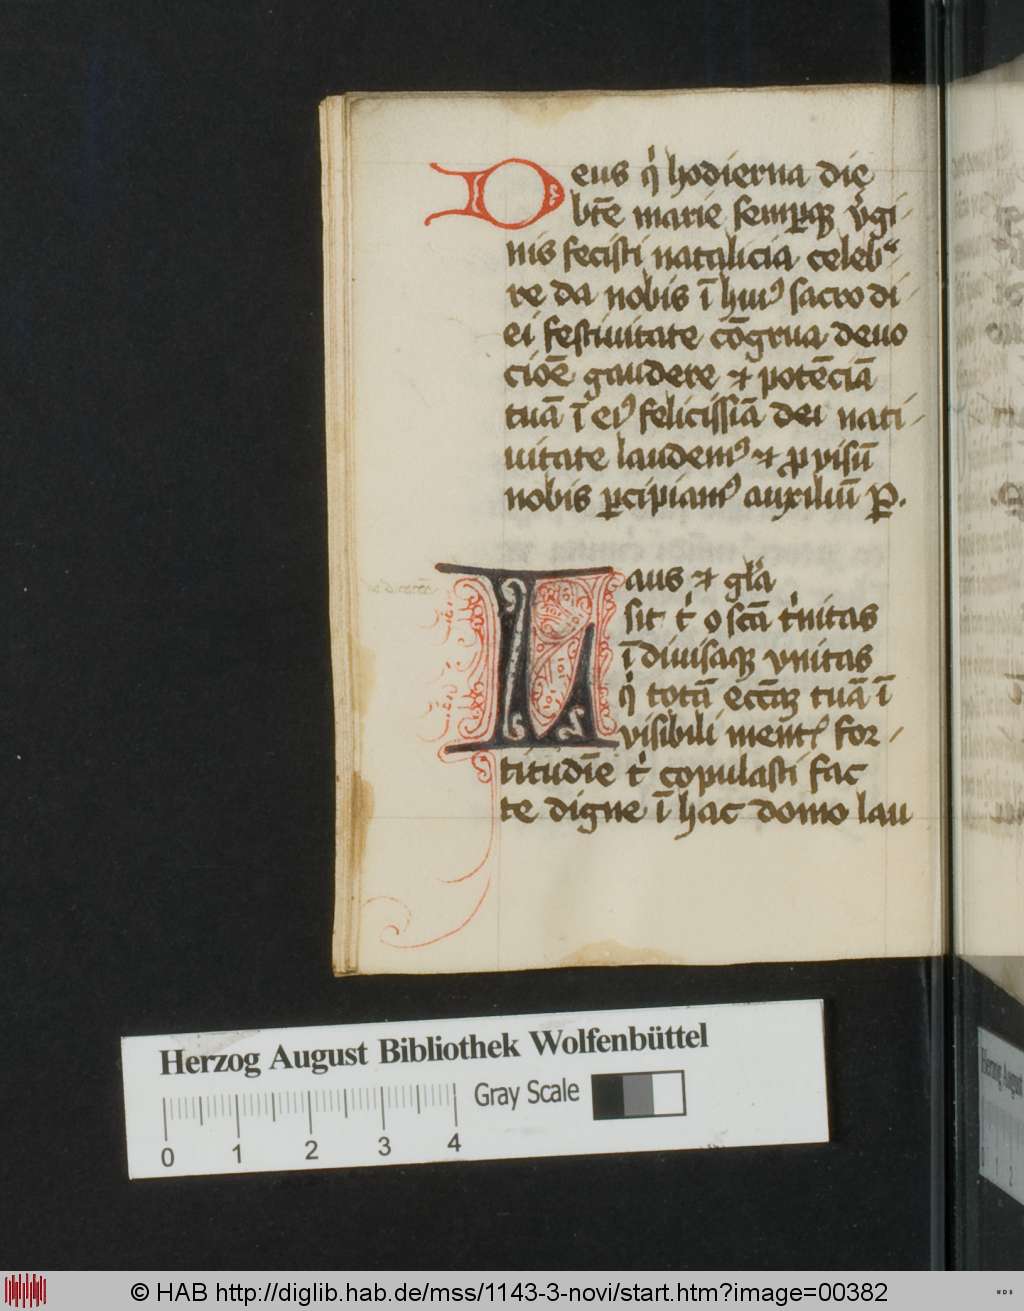 Deus qͥ hodierna die
bt̄e marie semꝑqꝫ v̓gi-
nis fecisti natalicia celebᵃ-
re da nobis ī huiꝰ sacro di-
ei festiuitate cōgrua deuo
cioē gaudere ⁊ potēciā
tuā ī eiꝰ felicissīa dei nati-
uitate laudemꝰ ⁊ ꝓvisū
nobis ꝑcipiamꝰ auxiliū P̲.
Laus ⁊ gl̓a
sit tͥ o scā tͥnitas
ī diuisaqꝫ vnitas
qͥ totā eccāꝫ tuā ī
visibili ment̓ for-
titudīe tͥ copulasti fac
te digne ī hac domo lau
Herzog August Bibliothek Wolfenbüttel
Gray Scale
0 1 2 3 4
© HAB http://diglib.hab.de/mss/1143-3-novi/start.htm?image=00382